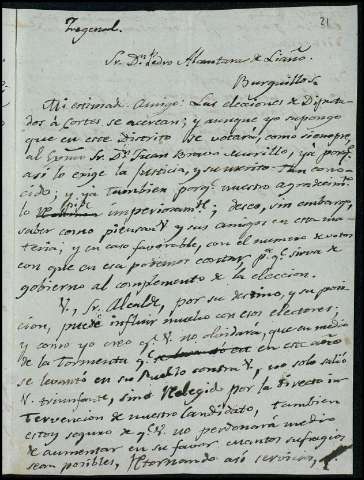 21
Fregenal.
Sr. Dn. Pedro Alcantara de Liaño.
Burguillos.
Mi estimado Amigo: Las elecciones de Diputa-
dos à Cortes se acercan; y aunque yo supongo
que en ese Distrito se votará, como siempre,
al Excmo Sr. Dn. Juan Bravo Murillo, ya porqe.
así lo exige la Justicia, y su mérito tan cono-
cido; y ya tambien porqe. nuestro agradecimto.
lo pide imperiosamte.; deseo, sin embargo,
saber como piensan V. y sus amigos en esta ma-
teria; y en caso favorable, con el numero de votos
con que en esa podemos contar pa. qe. sirva de
gobierno al complemento de la eleccion.
V., Sr. Alcalde, por su destino, y su posi-
cion, puede influir mucho con esos electores;
y como yo creo qe. V. no olvidará, que en medio
de la Tormenta qe. en este año
se levantó en su Pueblo contra V., no solo salió
V. triunfante, sino Relegido por la directa in-
tervencion de nuestro Candidato, tambien
estoy seguro de qe. V. no perdonará medio
de aumentar en su favor cuantos sufragios
sean posibles, Retornando así servicios,